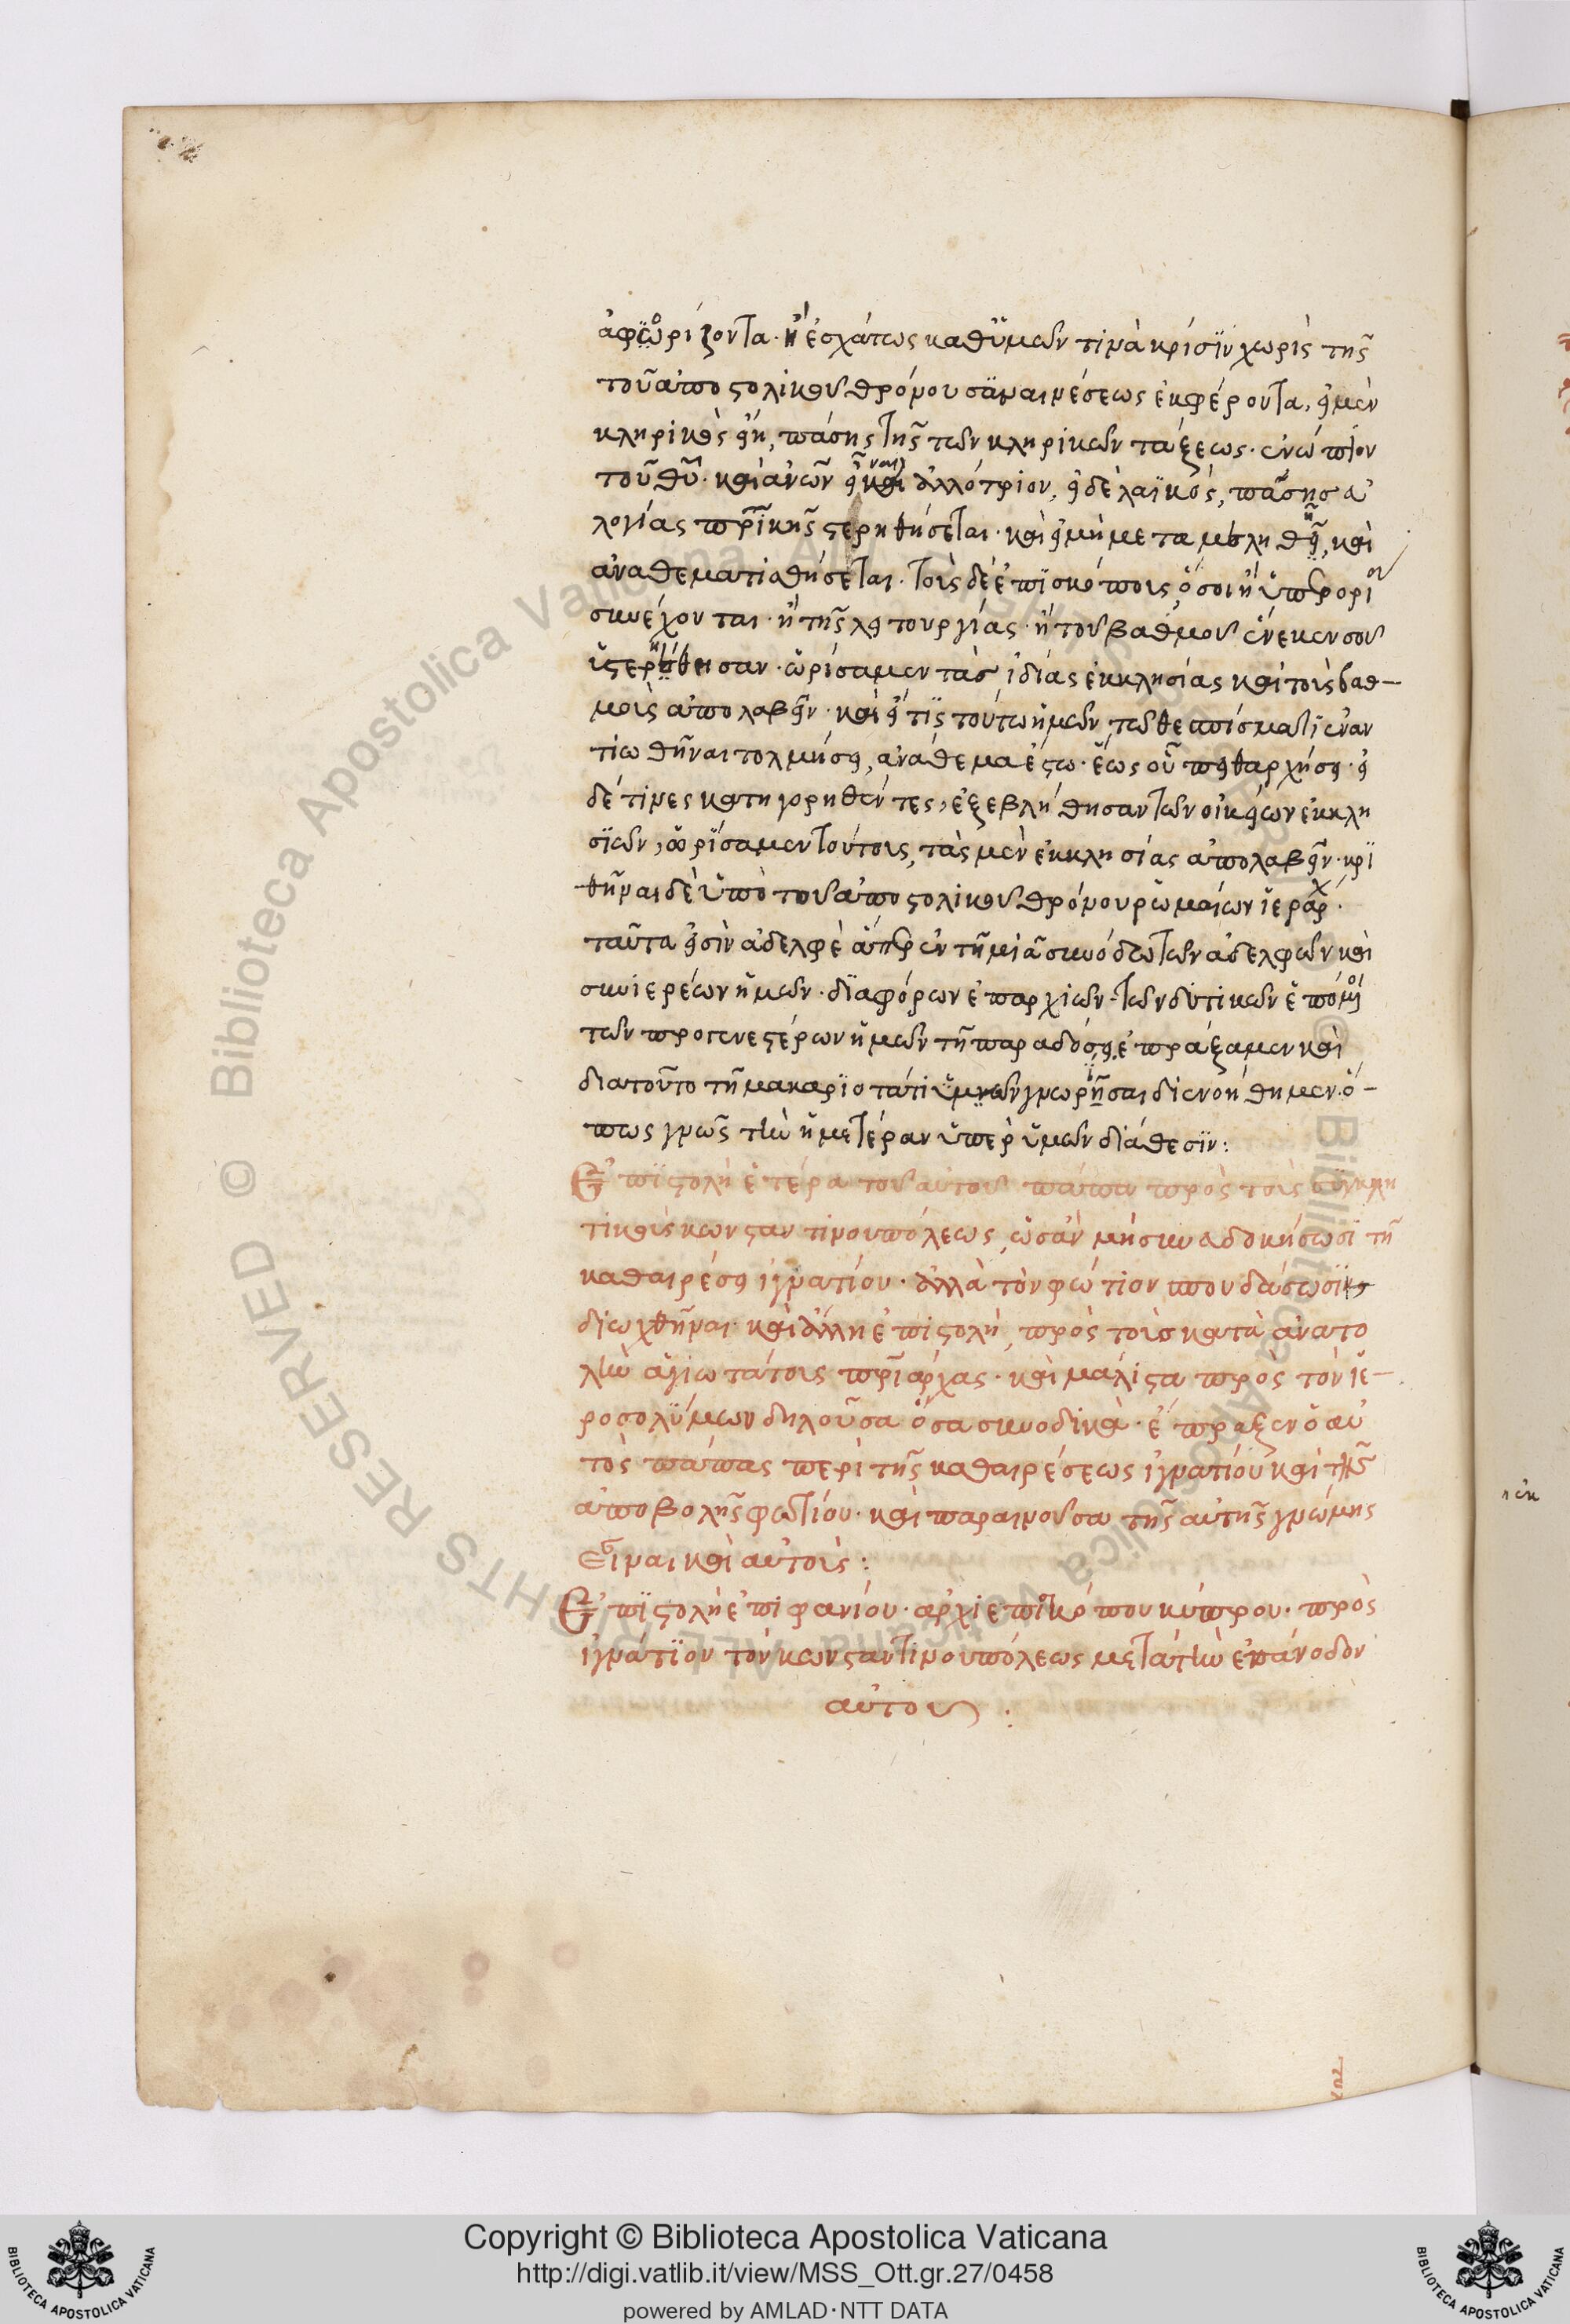 ἀφορίζοντα· ἢ ἐσχάτως καθ ὑμῶν τινὰ κρίσιν χωρὶς τῆς
τοῦ ἀποστολικοῦ θρόνου συναινέσεως ἐκφέροντα, εἰ μὲν
κληρικὸς εἴη, πάσης τῆς τῶν κληρικῶν τάξεως· ἐνώπιον
τοῦ θυ· καὶ ἀνων εἶναι ἀλλότριον, εἰ δὲ λαϊκὸς, πάσης εὐ
λογίας πρικῆς στερηθήσεται· καὶ εἰ μὴ μεταμεληθείη, καὶ
ἀναθεματισθήσεται. τοῖς δὲ ἐπισκόποις, ὅσοι ἢ ὑπερορίου
συνέχονται· ἢ τῆς λειτουργίας· ἢ τοῦ βαθμοῦ ἕνεκεν σου
ὑστερήθησαν· ὡρίσαμεν τὰς ἰδίας ἐκκλησίας καὶ τοὺς βαθ-
μοὺς ἀπολαβεῖν· καὶ εἴ τις τούτω ἡμῶν τῶ θεσπίσματι ἐναν
τιωθῆναι τολμήσει, ἀνάθεμα ἔστω· ἕως οὗ πειθαρχήσει· εἰ
δέ τινες κατηγορηθέντες, ἐξεβλήθησαν τῶν οἰκείων ἐκκλη
σιῶν, ὡρίσαμεν τούτους, τὰς μὲν ἐκκλησίας ἀπολαβεῖν· κρι
θῆναι δὲ ὑπὸ τοῦ ἀποστολικοῦ θρόνου ῥωμαίων ἱεράρχ·
ταῦτα εἰσὶν ἀδελφὲ ἅπερ ἐν τῆ μιᾶ συνόδω τῶν ἀδελφῶν καὶ
συνιερέων ἡμῶν· διαφόρων ἐπαρχιῶν· τῶν δυτικῶν ἑπόμενοι
τῶν προγενεστέρων ἡμῶν τῆ παραδόσει, ἐπράξαμεν καὶ
διατοῦτο τῆ μακαριοτάτι ὑμῶν γνωρῆσαι διενοήθημεν· ὅ-
πως γνῶς τὴν ἡμετέραν ὑπὲρ ὑμῶν διάθεσιν:
Ἐπιστολὴ ἑτέρα τοῦ αὐτοῦ πάπα πρὸς τοὺς συγκλη
τικοὺς κωνσταντινουπόλεως, ὡσὰν μὴ συνευδοκήσωσι τῆ
καθαιρέσει ἰγνατίου· ἀλλὰ τὸν φώτιον σπουδάσωσιν
διωχθῆναι· καὶ ἄλλη ἐπιστολὴ, πρὸς τοὺς κατὰ ἀνατο
λὴν ἁγιωτάτους πριάρχας· καὶ μάλιστα πρὸς τὸν ἱε-
ροσολύμων δηλοῦσα ὅσα συνοδικὰ· ἔπραξεν ὁ αὐ
τὸς πάπας περὶ τῆς καθαιρέσεως ἰγνατίου καὶ τῆς
ἀποβολῆς φωτίου· καὶ παραινοῦσα τῆς αὐτῆς γνώμης
εἶναι καὶ αὐτοὺς:
Ἐπιστολὴ ἐπιφανίου· ἀρχιεπισκόπου κύπρου· πρὸς
ἰγνάτιον τὸν κωνσταντινουπόλεως μετὰ τὴν ἐπάνοδον
αὐτοῦ:
Biblioteca Apostolica Vaticana
ALL RIGHTS RESERVED ©
Copyright © Biblioteca Apostolica Vaticana
http://digi.vatlib.it/view/MSS_Ott.gr.27/0458
powered by AMLAD·NTT DATA
BIBLIOTECA APOSTOLICA VATICANA
BIBLIOTECA APOSTOLICA VATICANA